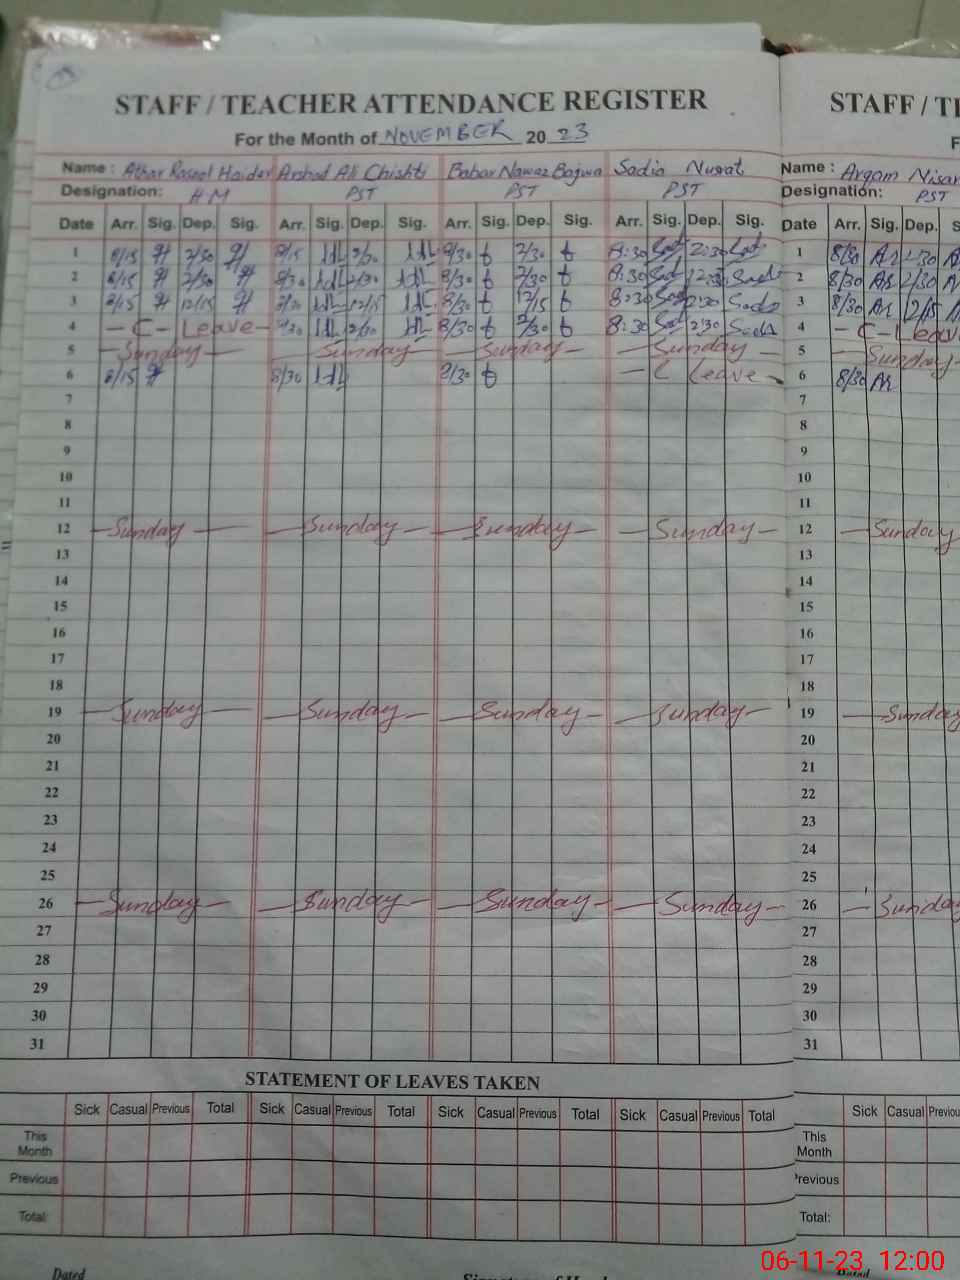 STAFF / TEACHER ATTENDANCE REGISTER STAFF / TE
For the Month of NOVEMBER 2023 F
Name : Athar Rasool Haider Arshad Ali Chishti Babar Nawaz Bajwa Sadia Nusrat Name : Argam Nisar
Designation: HM PST PST PST Designation: PST
Date Arr. Sig. Dep. Sig. Arr. Sig. Dep. Sig. Arr. Sig. Dep. Sig. Arr. Sig. Dep. Sig. Date Arr. Sig. Dep. S
1 8/15 2/30 8/15 2/30 8/30 2/30 8:30 2:30 1 8/30 2/30
2 8/15 2/30 8/30 2/30 8/30 2/30 8:30 2 8/30 2/30
3 8/15 12/15 8/30 12/15 8/30 12/15 8:30 3 8/30 12/15
4 - C - Leave - 8/30 2/30 8/30 2/30 8:30 2:30 4 - C - Leav
5 Sunday Sunday Sunday Sunday 5 Sunday
6 8/15 8/30 8/30 - C Leave - 6 8/30
7 7
8 8
9 9
10 10
11 11
12 Sunday Sunday Sunday Sunday 12 Sunday
13 13
14 14
15 15
16 16
17 17
18 18
19 Sunday Sunday Sunday Sunday 19 Sunday
20 20
21 21
22 22
23 23
24 24
25 25
26 Sunday Sunday Sunday Sunday 26 Sunday
27 27
28 28
29 29
30 30
31 31
STATEMENT OF LEAVES TAKEN
Sick Casual Previous Total Sick Casual Previous Total Sick Casual Previous Total Sick Casual Previous Total Sick Casual Previou
This Month This Month
Previous Previous
Total: Total:
Dated
06-11-23 12:00